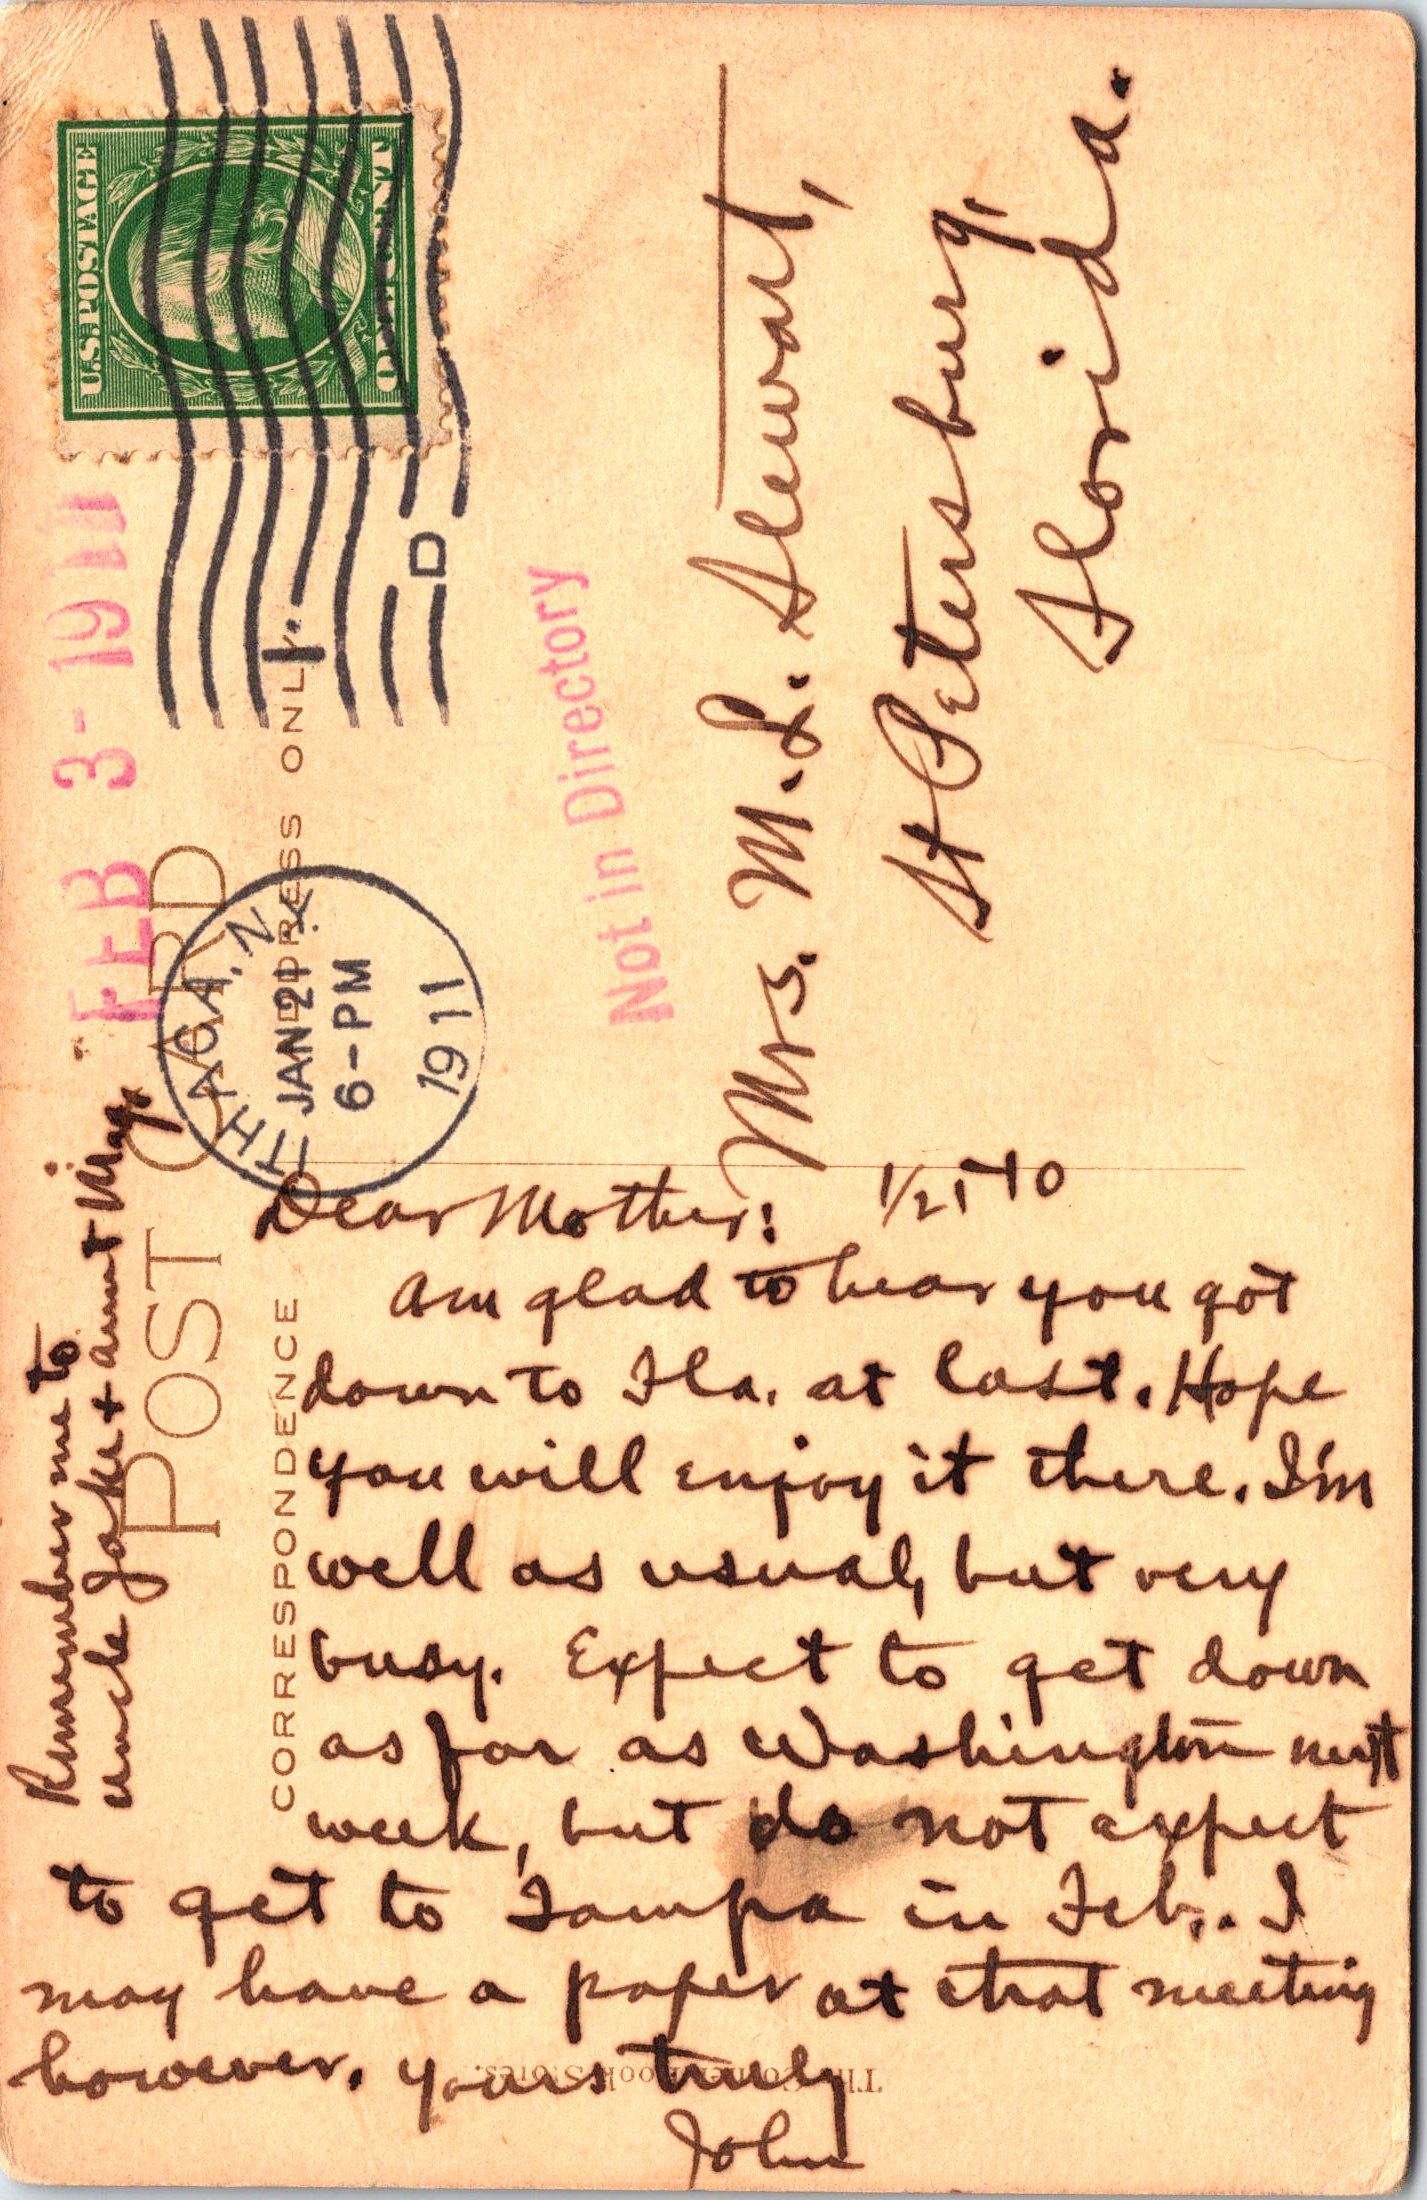 U.S.POSTAGE
ONE CENT
FEB 3-1911
POST CARD
ADDRESS ONLY.
CORRESPONDENCE
ITHACA, N.Y.
JAN 21
6-PM
1911
1
D
Not in Directory
Mrs. M. L. Stewart,
St Petersburg,
Florida.
1/21-10
Dear Mother:
Am glad to hear you got
down to Fla. at last. Hope
you will enjoy it there. I'm
well as usual, but very
busy. Expect to get down
as far as Washington next
week, but do not expect
to get to Tampa in Feb.. I
may have a paper at that meeting
however. Yours truly
John
Remember me to
Uncle Jake + Aunt Mag.